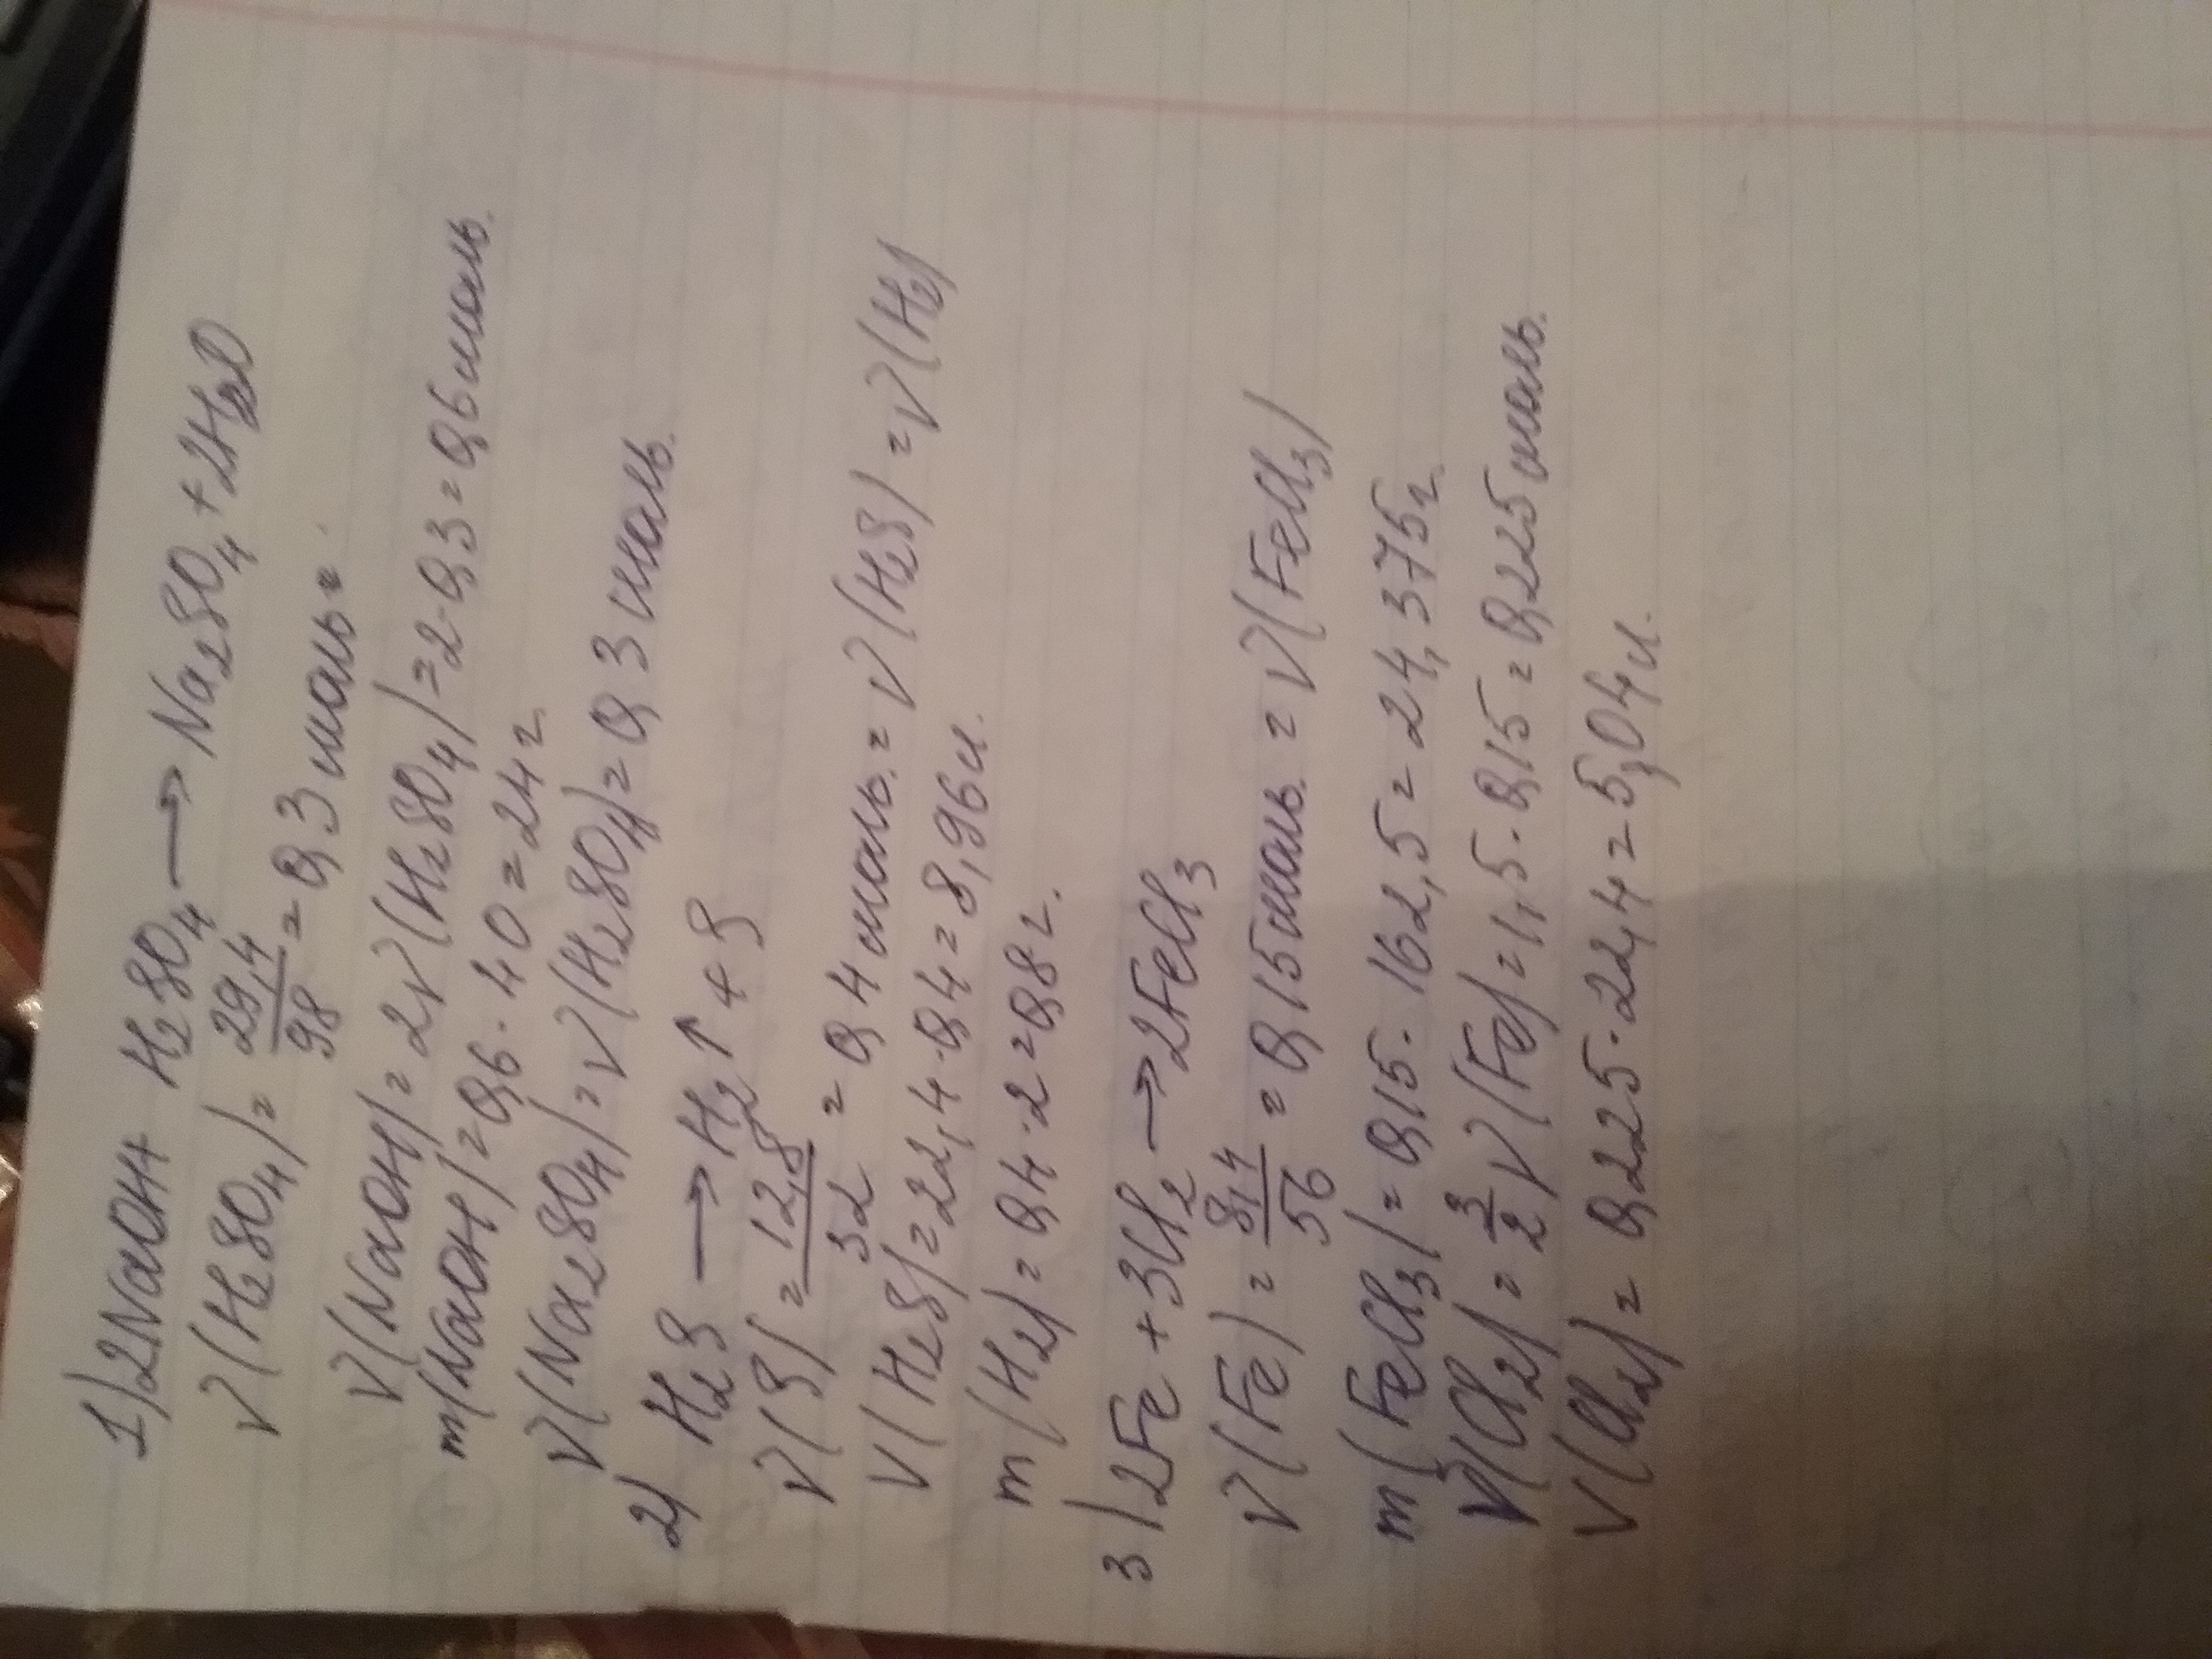 1) 2NaOH + H₂SO₄ → Na₂SO₄ + 2H₂O
ν(H₂SO₄) = 29,4/98 = 0,3 моль =
ν(NaOH) = 2ν(H₂SO₄) = 2·0,3 = 0,6 моль.
m(NaOH) = 0,6·40 = 24 г.
ν(Na₂SO₄) = ν(H₂SO₄) = 0,3 моль.
2) H₂S → H₂↑ + S
ν(S) = 12,8/32 = 0,4 моль. = ν(H₂S) = ν(H₂)
V(H₂S) = 22,4·0,4 = 8,96 л.
m(H₂) = 0,4·2 = 0,8 г.
3) 2Fe + 3Cl₂ → 2FeCl₃
ν(Fe) = 8,4/56 = 0,15 моль. = ν(FeCl₃)
m(FeCl₃) = 0,15·162,5 = 24,375 г.
ν(Cl₂) = 3/2 ν(Fe) = 1,5·0,15 = 0,225 моль.
V(Cl₂) = 0,225·22,4 = 5,04 л.